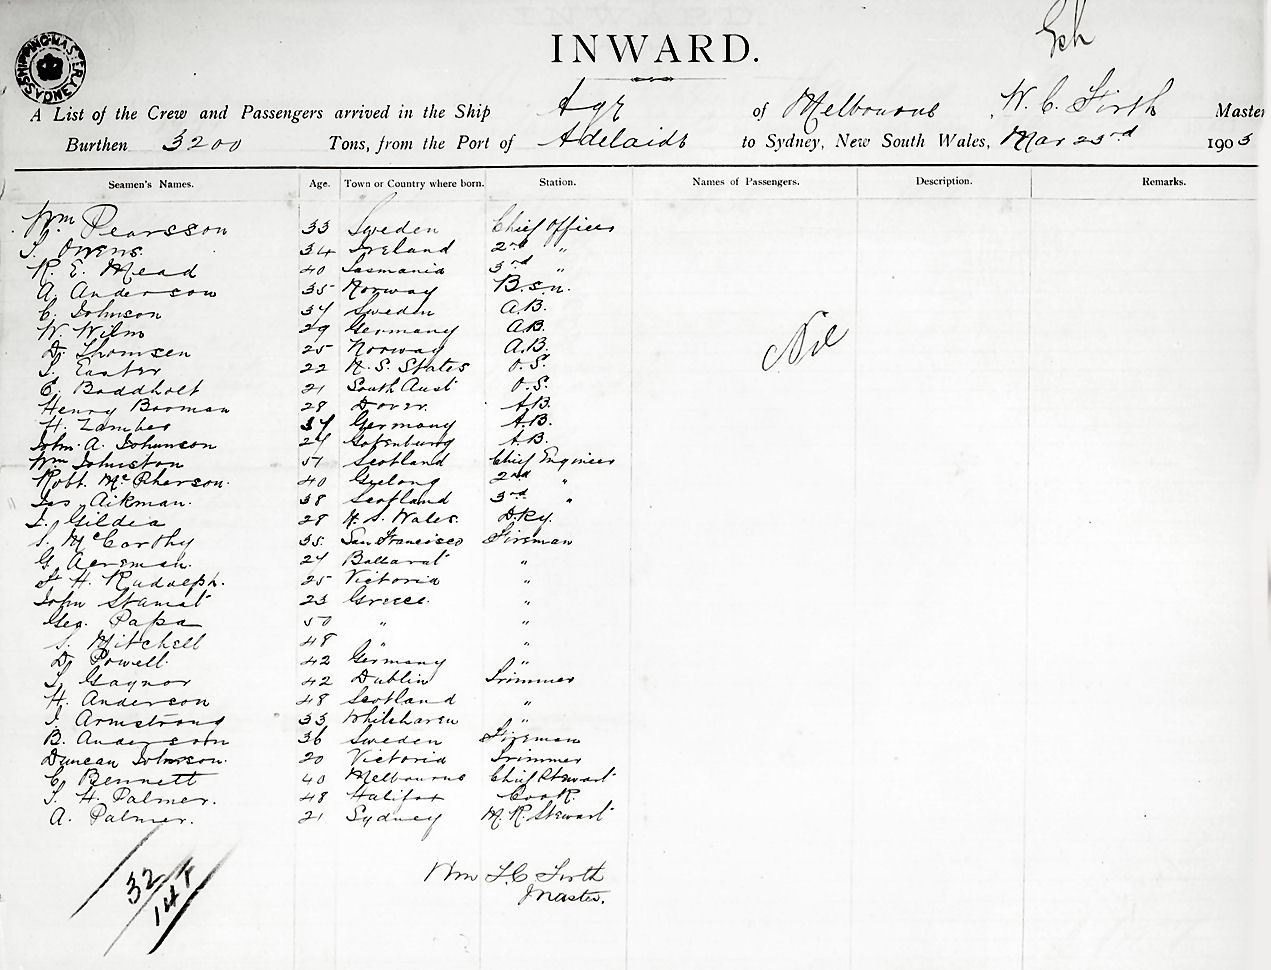 INWARD.
SHIPPING MASTER SYDNEY
A List of the Crew and Passengers arrived in the Ship Age of Melbourne W. C. Firth Master
Burthen 3200 Tons, from the Port of Adelaide to Sydney, New South Wales, Mar 23rd 1903
Seamen's Names. Age. Town or Country where born. Station. Names of Passengers. Description. Remarks.
Wm Pearsson 33 Sweden Chief Officer
Owens. 34 Ireland 2nd "
R. E. Mead 40 Tasmania 3rd "
A. Anderson 35 Norway B.s.n.
C. Johnson 34 Sweden A.B.
W. Wilm 29 Germany A.B.
D. Thomsen 25 Norway A.B.
Nil
Easter 22 U. S. States O.S.
C. Baddholt 21 South Aust O.S.
Henry Booman 28 Dover. A.B.
H. Zambes 34 Germany A.B.
John. A. Johanson 24 Gotenburg A.B.
Wm Johnston 51 Scotland Chief Engineer
Robt. McPherson. 40 Geelong 2nd "
Jas Aikman. 38 Scotland 3rd "
Gildea 28 N. S. Wales. D.Ky.
McCarthy 35 San Francisco Fireman
G. 24 Ballarat "
H. Rudolph. 25 Victoria "
John Stamat 23 Greece. "
Geo. Papa 50 " "
S. Mitchell 48 " "
D. Powell. 42 Germany "
Gaynor 42 Dublin Trimmer
H. Anderson 48 Scotland "
J. Armstrong 33 Whitehaven "
B. Anderson 36 Sweden Fireman
Duncan Johnson. 20 Victoria Trimmer
C. Bennett 40 Melbourne Chief Stewart
H. Palmer. 48 Halifax Cook.
A. Palmer. 21 Sydney M. R. Stewart
32
Wm F. C Firth
Master.